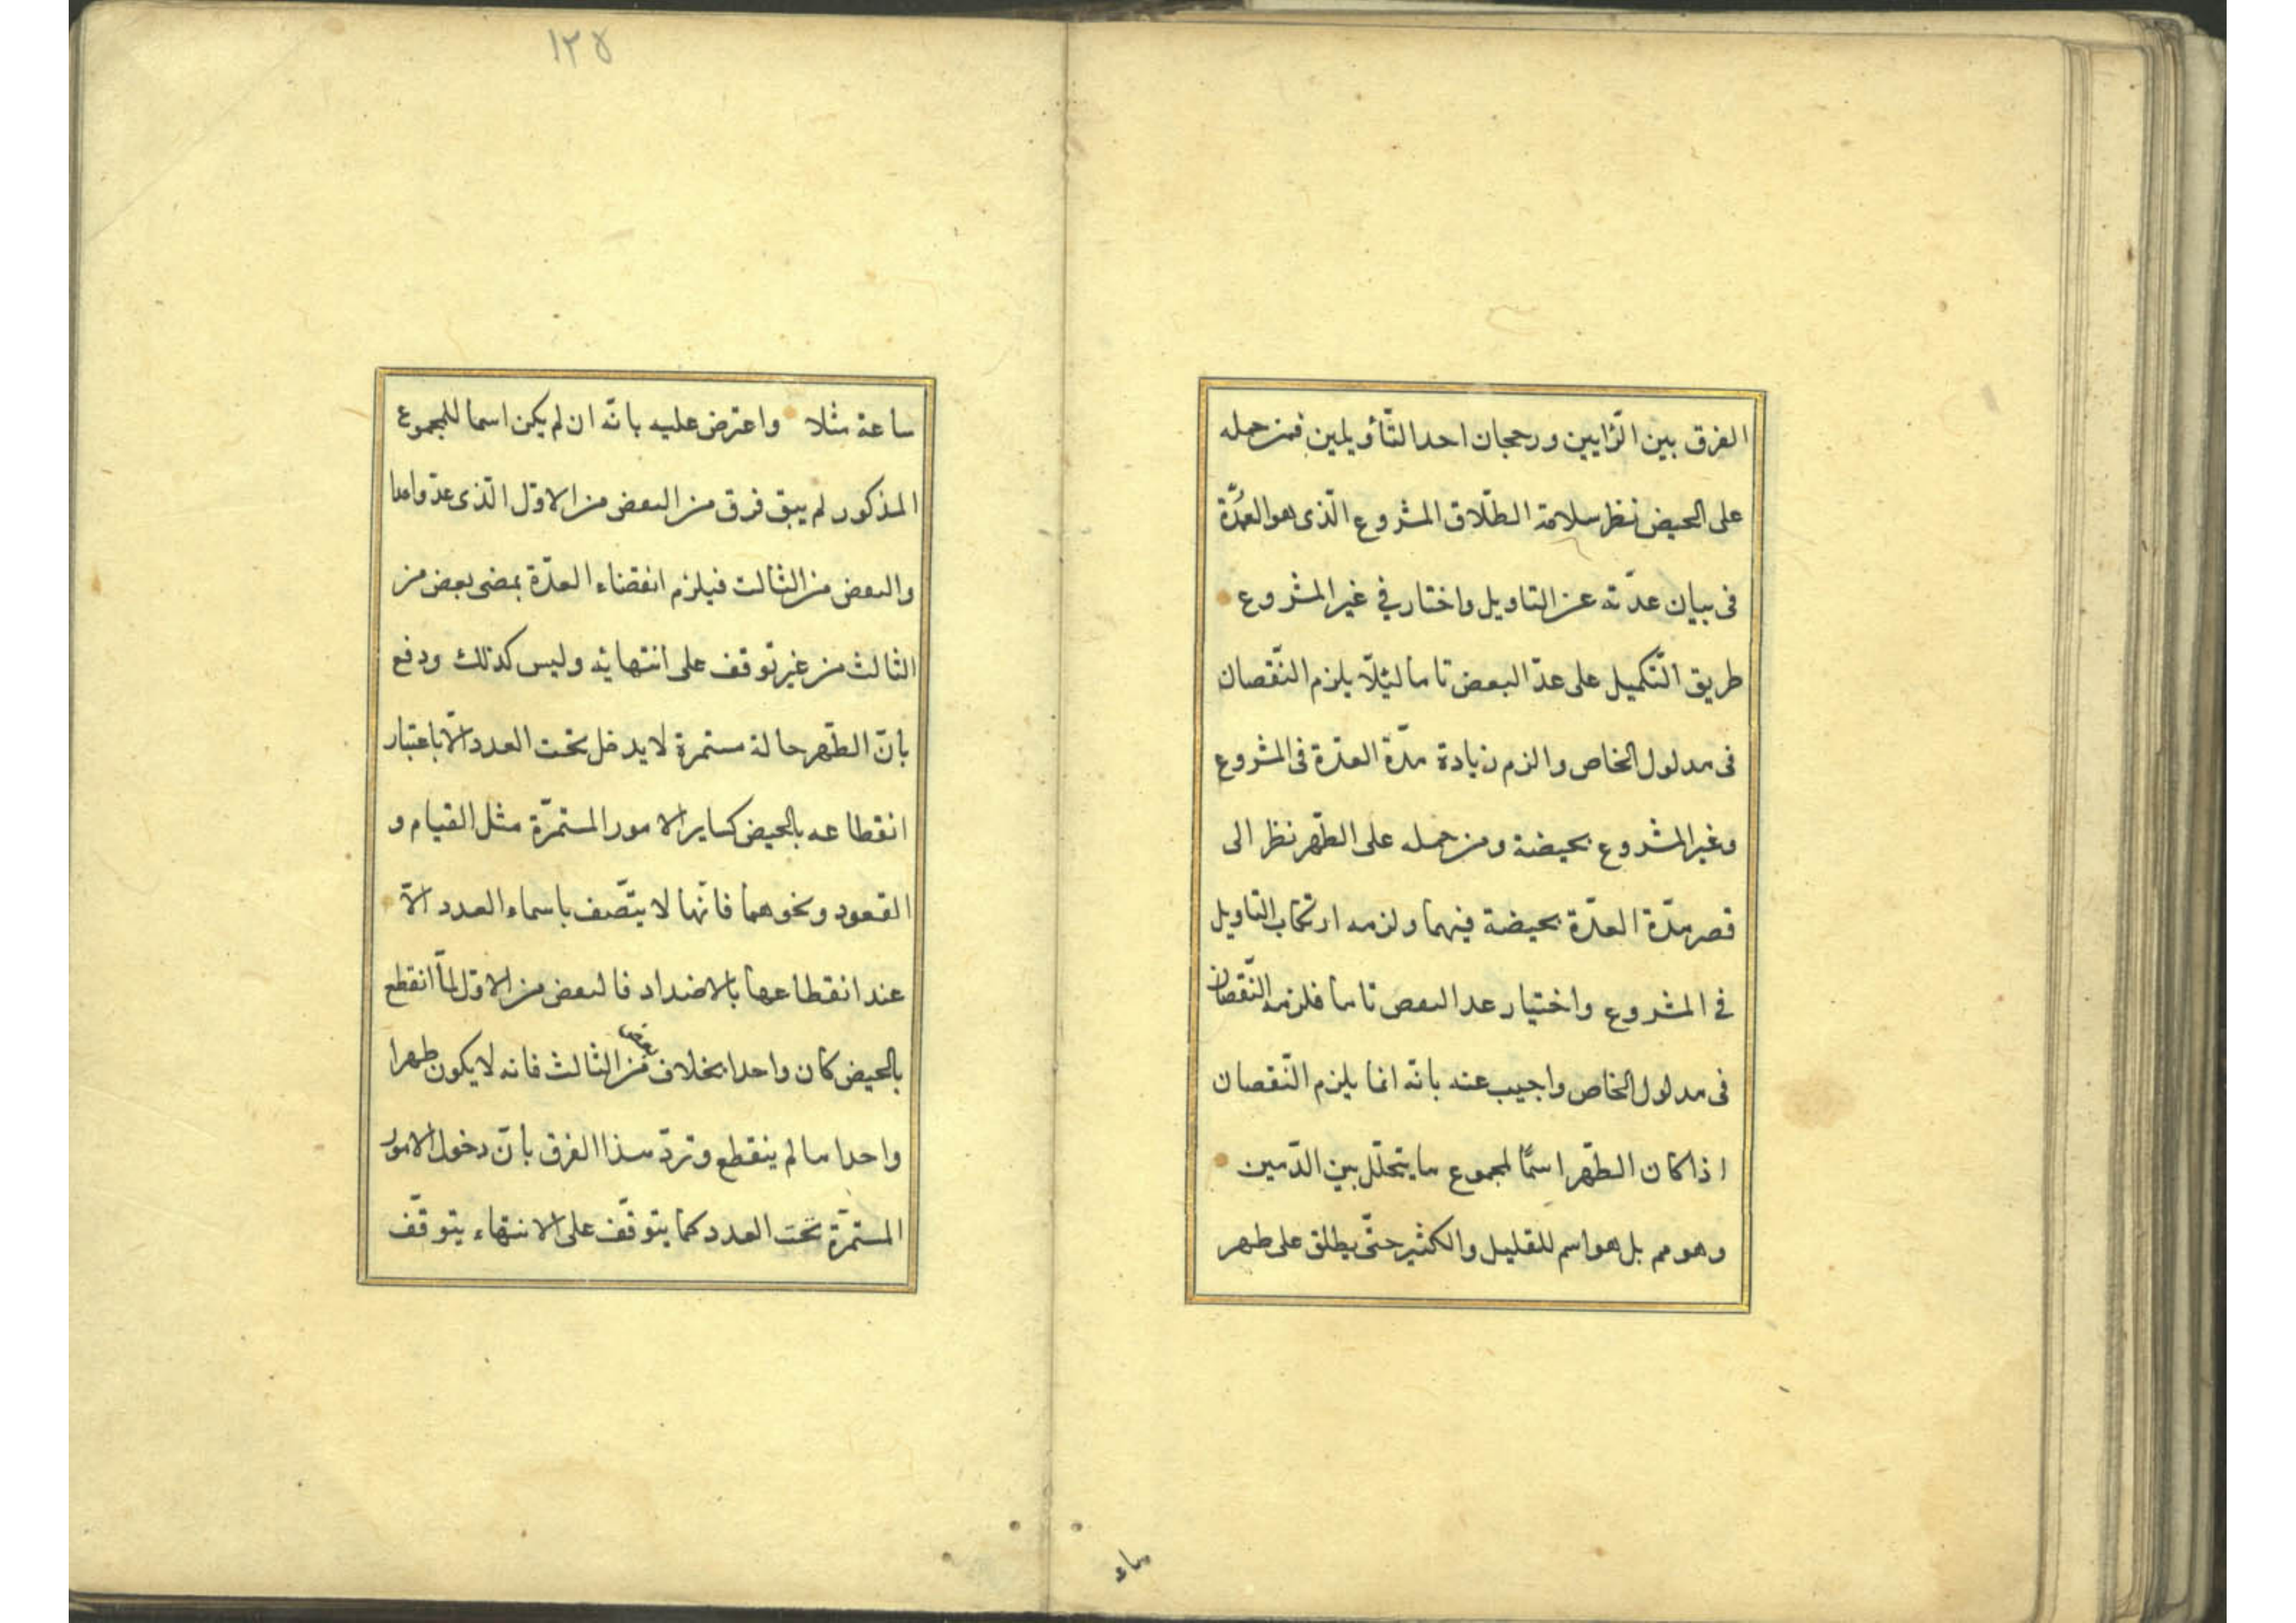 الفرق بين الرّايين ورجحان احد التّأويلين فمن حمله
على الحيض نظر سلامة الطّلاق المشروع الّذى هو العُمدّة
فى بيان عدّته عن التاويل واختار في غير المشروع
طريق التّكميل على عدّ البعض تاما ليُلّا يلزم النّقصان
فى مدلول الخاص والزم زيادة مدّة العدّة فى المشروع
وغير المشروع بحيضة ومن حمله على الطّهر نظر الى
قصر مدّة العدّة بحيضة فيهما ولزمه ارتكاب التاويل
في المشروع واختيار عد البعض تاما فلزمه النّقصان
فى مدلول الخاص واجيب عنه بانّه انما يلزم النّقصان
اذا كان الطّهر اسمًا لمجموع ما يتخلّل بين الدّمين
وهو مم بل هو اسم للقليل والكثير حتّى يطلق على طهر
١٢٥
ساعة مثلا واعترض عليه بانّه ان لم يكن اسما للمجموع
المذكور لم يبق فرق من البعض من الاوّل الّذى عدّ واحدا
والبعض من الثالث فيلزم انقضاء العدّة بمضى بعض من
الثالث من غير توقف على انتهايه وليس كذلك ودفع
بانّ الطّهر حالة مستمرة لا يدخل تحت العدد الّا باعتبار
انقطاعه بالحيض كساير الامور المستمرّة مثل القيام و
القعود ونحوهما فانّها لا يتّصف باسماء العدد الّا
عند انقطاعها بالاضداد فالبعض من الاوّل لمّا انقطع
بالحيض كان واحدا بخلاف بعض من الثالث فانه لا يكون طهرا
واحدا ما لم ينقطع وتردّ هذا الفرق بانّ دخول الامور
المستمرّة تحت العدد كما يتوقّف على الانتهاء يتوقّف